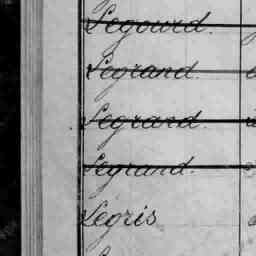 Legourd.
Legrand.
Legrand.
Legrand.
Legris